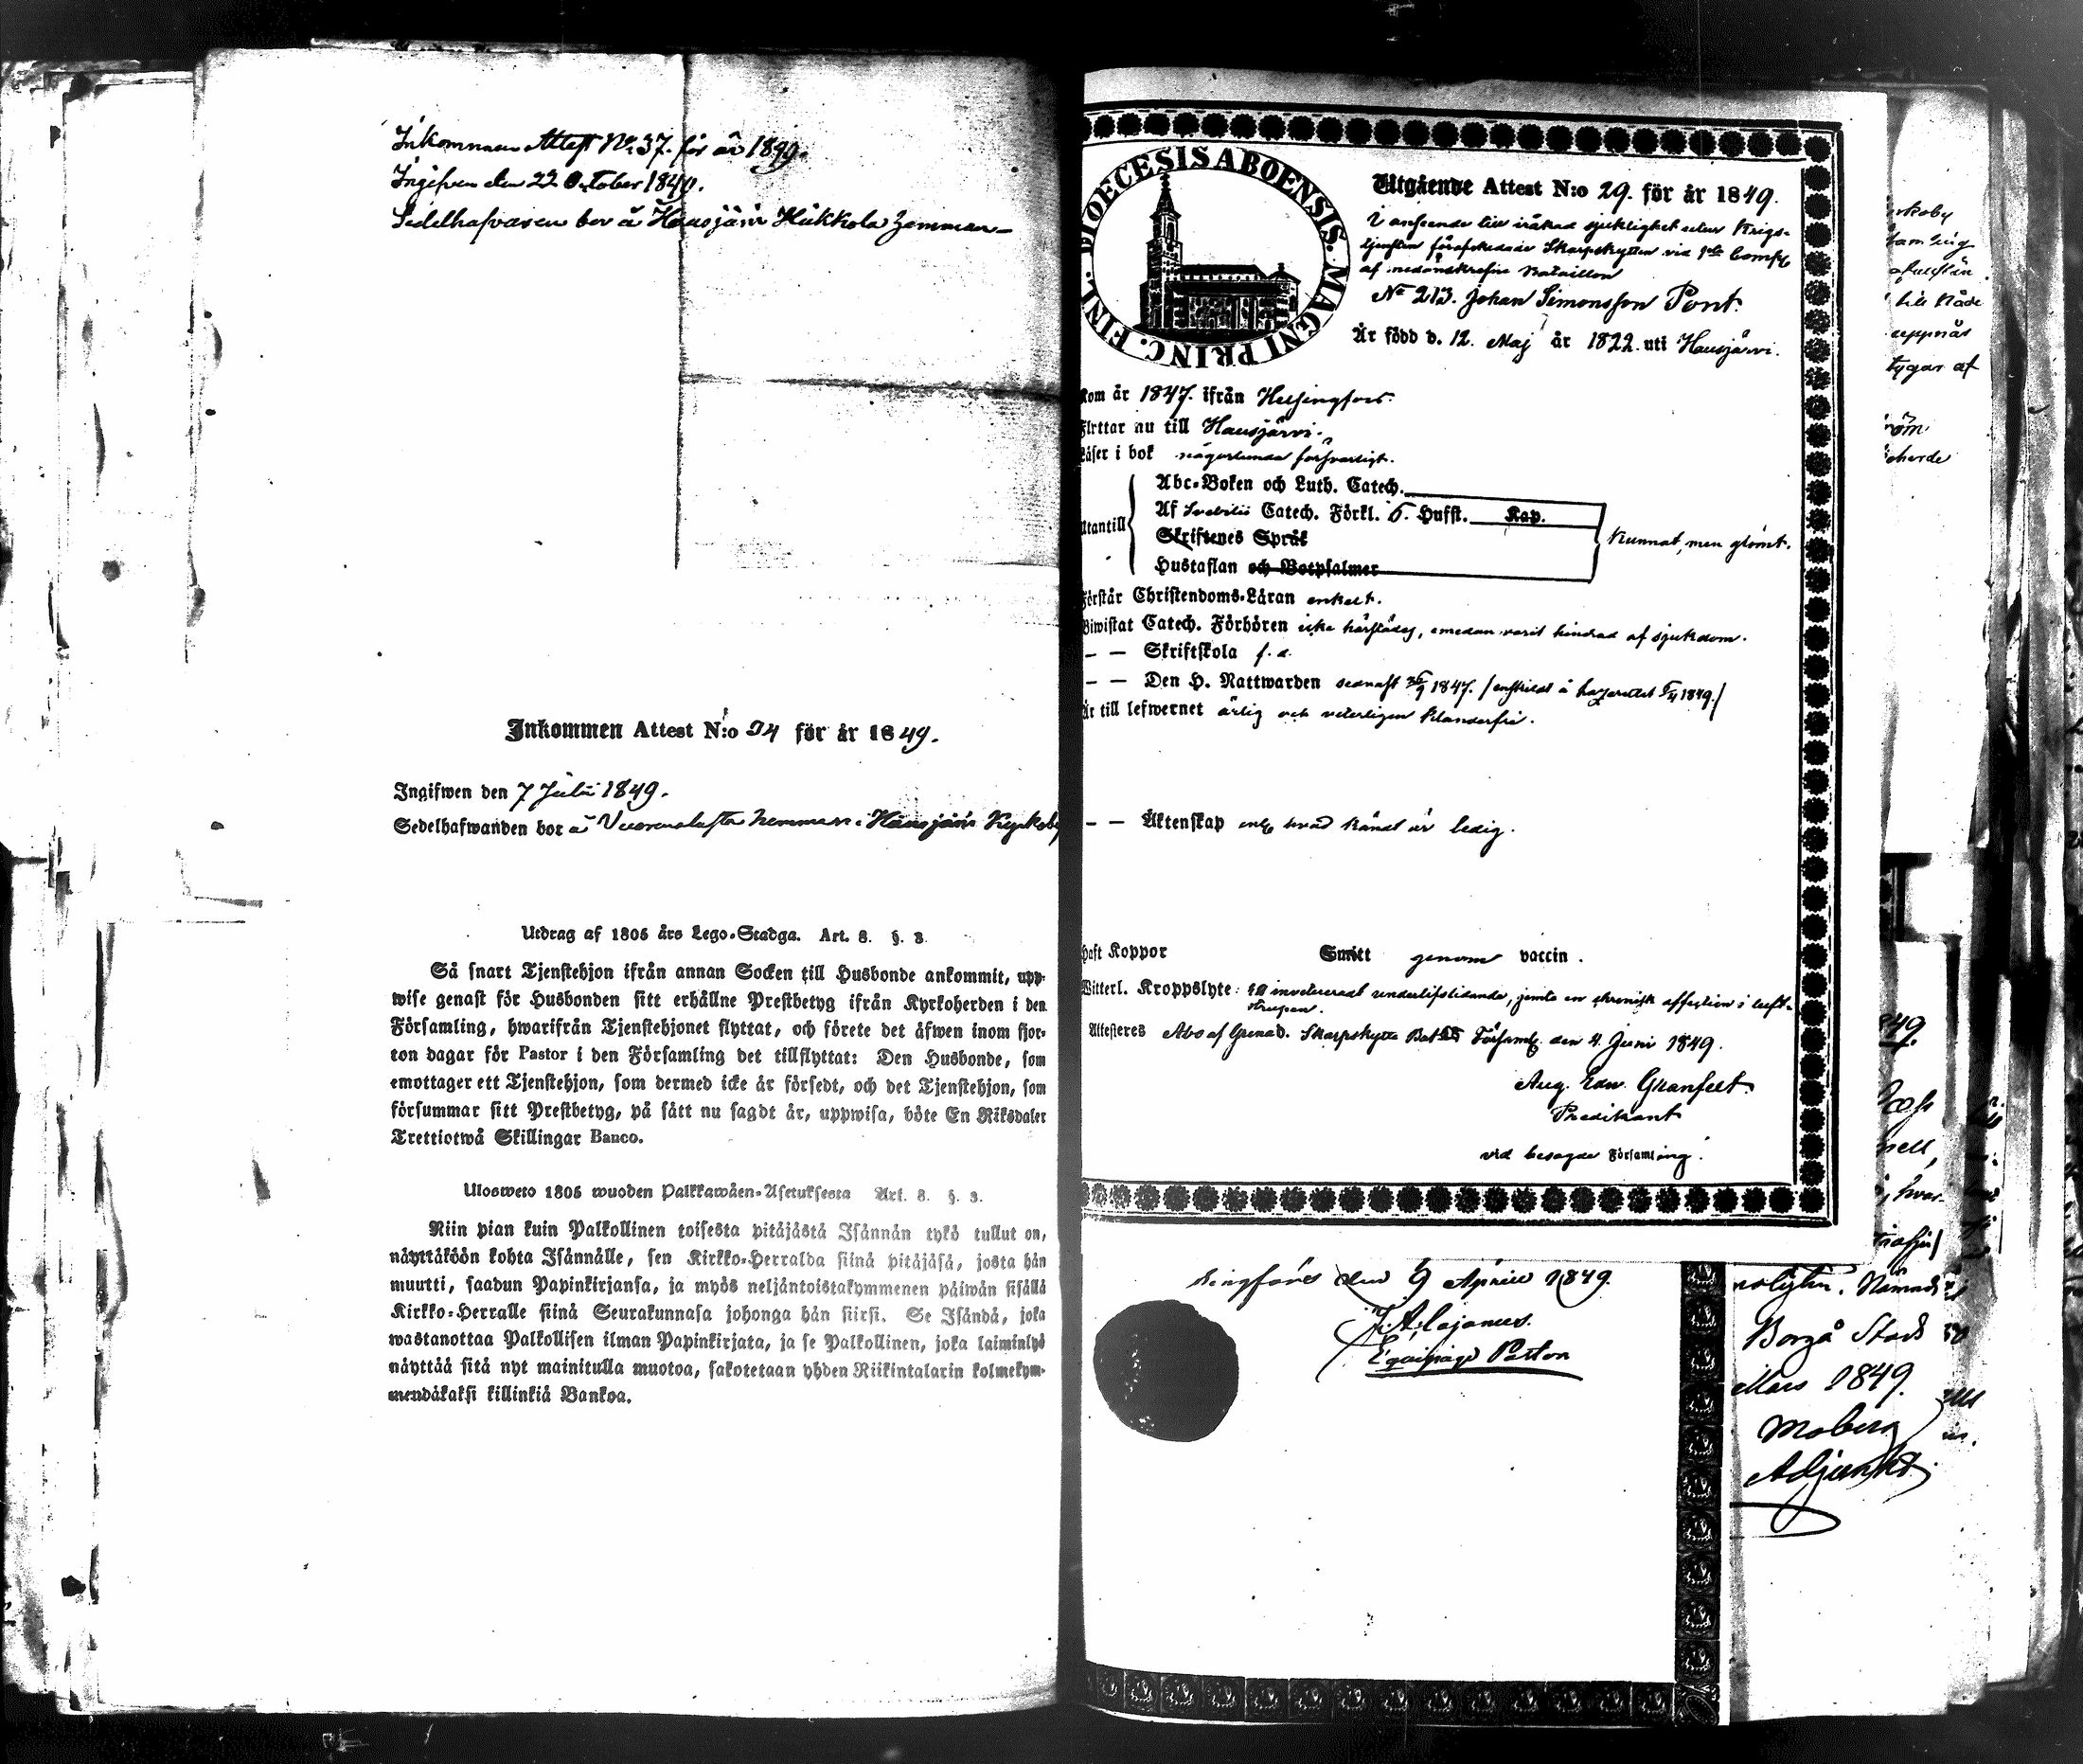 Inkommen Attest No. 37. för år 1849.
Ingifven den 22 October 1849.
Sedelhafvaren bor å Hausjärvi Hikkola hemman
Inkommen Attest N:o 24 för år 1849.
Ingifwen den 7 Juli 1849.
Sedelhafwanden bor å hemman i Hausjärvi Kyrkoby
Utdrag af 1805 års Lego-Stadga. Art. 8. §. 3.
Så snart Tjenstehjon ifrån annan Socken till Husbonde ankommit, upp-
wise genast för Husbonden sitt erhållne Prestbetyg ifrån Kyrkoherden i den
Församling, hwarifrån Tjenstehjonet flyttat, och förete det äfwen inom fjor-
ton dagar för Pastor i den Församling det tillflyttat: Den Husbonde, som
emottager ett Tjenstehjon, som dermed icke är försedt, och det Tjenstehjon, som
försummar sitt Prestbetyg, på sätt nu sagdt är, uppwisa, böte En Riksdaler
Trettiotwå Skillingar Banco.
Ulosweto 1805 wuoden Palkkawäen-Asetuksesta Art. 8. §. 3.
Niin pian kuin Palkollinen toisesta pitäjästä Isännän tykö tullut on,
näyttäköön kohta Isännälle, sen Kirkko-Herralda siinä pitäjäsä, josta hän
muutti, saadun Papinkirjansa, ja myös neljäntoistakymmenen päiwän sisällä
Kirkko-Herralle siinä Seurakunnasa johonga hän siirsi. Se Isändä, joka
wastanottaa Palkollisen ilman Papinkirjata, ja se Palkollinen, joka laiminlyö
näyttää sitä nyt mainitulla muotoa, sakotetaan yhden Riikintalarin kolmekym-
mendäkaksi killinkiä Bankoa.
DIOECESIS ABOENSIS. MAGNI PRINC. FINL.
Utgående Attest N:o 29. för år 1849.
I anseende till iråkad sjuklighet under Krigs-
tjensten förafskedade Skarpskytten vid 1sta Comp
af nedanskrefne Bataillon
No 213. Johan Simonsson Pont.
Är född d. 12. Maj år 1822. uti Hausjärvi.
Kom år 1847. ifrån Helsingfors.
Flyttar nu till Hausjärvi.
Läser i bok någorlunda försvarligt.
Abc-Boken och Luth. Catech.
Utantill Af Svebilii Catech. Förkl. 5. Hufst. Kap.
Skriftenes Språk Kunnat, men glömt.
Hustaflan och Botpsalmer
Förstår Christendoms-Läran enkelt.
Biwistat Catech. Förhören icke härstädes, emedan varit hindrad af sjukdom.
— — Skriftskola f. d.
— — Den H. Nattwarden sednast 1847. /enskildt å lazarettet 1849./
Är till lefwernet ärlig och veterligen klanderfri.
— — Äktenskap enl. hvad kändt är ledig.
Haft Koppor Smitt genom vaccin.
Witterl. Kroppslyte: inveteradt underlifslidande, jemte en chronisk affection i luft-
strupen.
Attesteres Åbo af Grenad. Skarpskytte Bat:s Församl. den 4. Juni 1849.
Aug. Edw. Granfelt.
Predikant
vid besagde Församling.
singfors den 9 April 1849.
Cajanus.
Equipage Pastor
Borgå Stad
Mars 1849.
Moberg
Adjunkt.